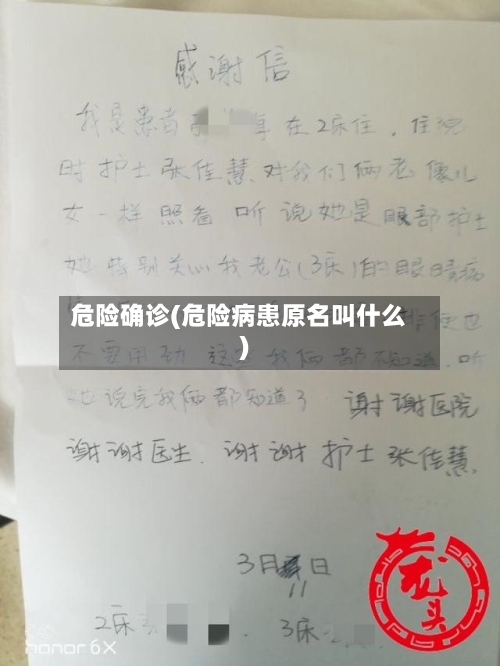 感谢信
我是患者 在2床住，住院
时护士张佳慧对我们俩老像儿
女一样照看 听说她是眼部护士
她特别关心我老公(3床)的眼睛病
危险确诊(危险病患原名叫什么
)
不要用劲 这些我俩都不知道，听
她说完我俩都知道了 谢谢医院
谢谢医生，谢谢护士张佳慧.
3月 日
11
2床 3床
龙头
honor 6X